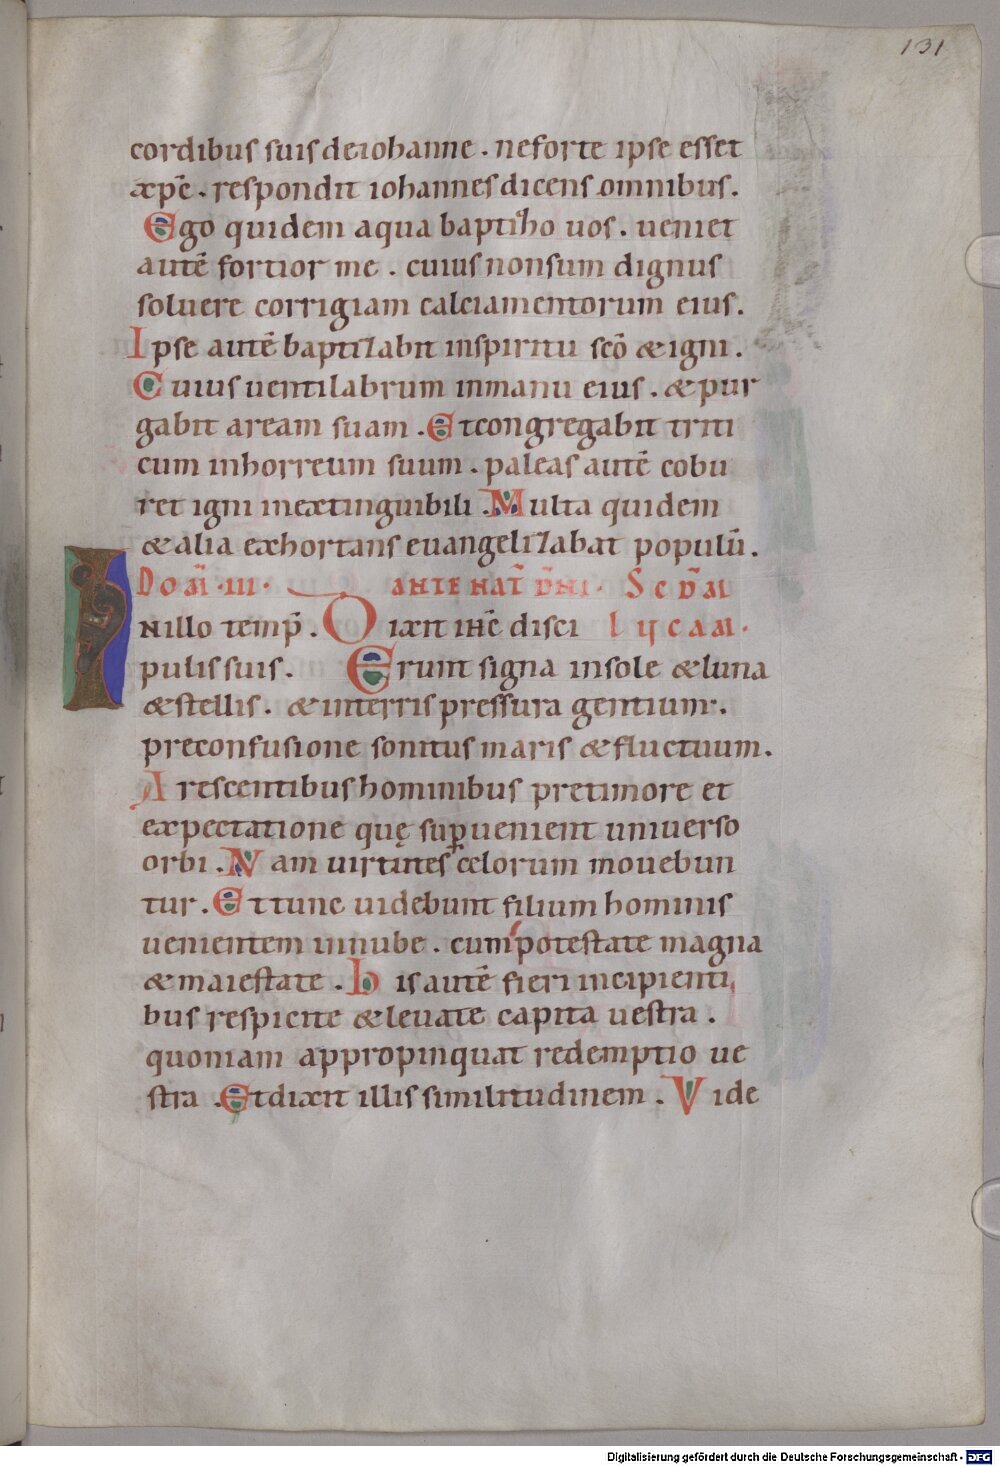 131
cordibus suis deiohanne . neforte ipse esset
æxp̄c . respondit iohannes dicens omnibus .
Ego quidem aqua baptizo uos . ueniet
autē fortior me . cuius nonsum dignus
soluere corrigiam calciamentorum eius .
Ipse autē baptizabit inspiritu scō & igni .
Cuius uentilabrum inmanu eius . & pur
gabit aream suam . Etcongregabit triti
cum inhorreum suum . paleas autē cobu
ret igni inextinguibili . Multa quidem
& alia exhortans euangelizabat populū .
DOM̄ . III . ANTE NAT̄ DN̄I . SCDM̄
INillo temp̄ . Dixit ihc̄ disci LUCAM .
pulis suis . Erunt signa insole & luna
& stellis . & interris pressura gentium .
preconfusione sonitus maris & fluctuum .
Arescentibus hominibus pretimore et
expectatione quę supuenient uniuerso
orbi . Nam uirtutes celorum mouebun
tur . Et tunc uidebunt filium hominis
uenientem innube . cum potestate magna
& maiestate . his autē fieri incipienti
bus respicite & leuate capita uestra .
quoniam appropinquat redemptio ue
stra . Etdixit illis similitudinem . Vide
Digitalisierung gefördert durch die Deutsche Forschungsgemeinschaft - DFG